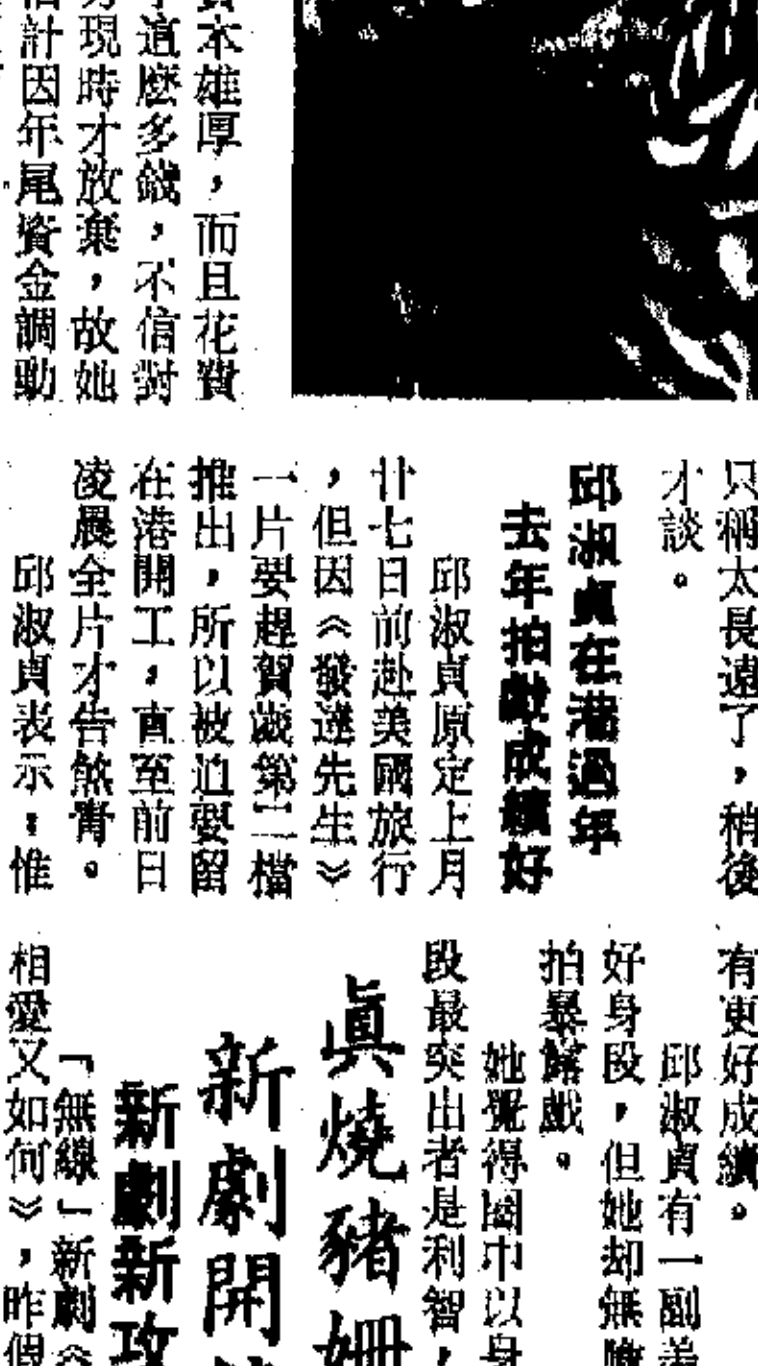 本雄厚，而且花費
這麼多錢，不信對
現時才放棄，故她
計因年尾資金調動
只稱太長遠了，稍後
才談。
邱淑貞在港過年
去年拍戲成績好
邱淑貞原定上月
廿七日前赴美國旅行
，但因《發達先生》
一片要趕賀歲第二檔
推出，所以被迫要留
在港開工，直至前日
凌晨全片才告煞青。
邱淑貞表示，惟
有更好成績。
邱淑貞有一副美
好身段，但她却無膽
拍暴露戲。
她覺得圈中以身
段最突出者是利智，
眞燒豬
新劇開
新劇新攻
「無線」新劇《
相愛又如何》，昨假